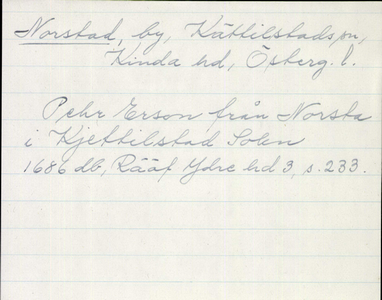 Norstad, by, Kättilstads sn,
Kinda hd, Österg. l.
Pehr Erson från Norsta
i Kjettilstad Solen
1686 db, Rääf Ydre hd 3, s. 233.